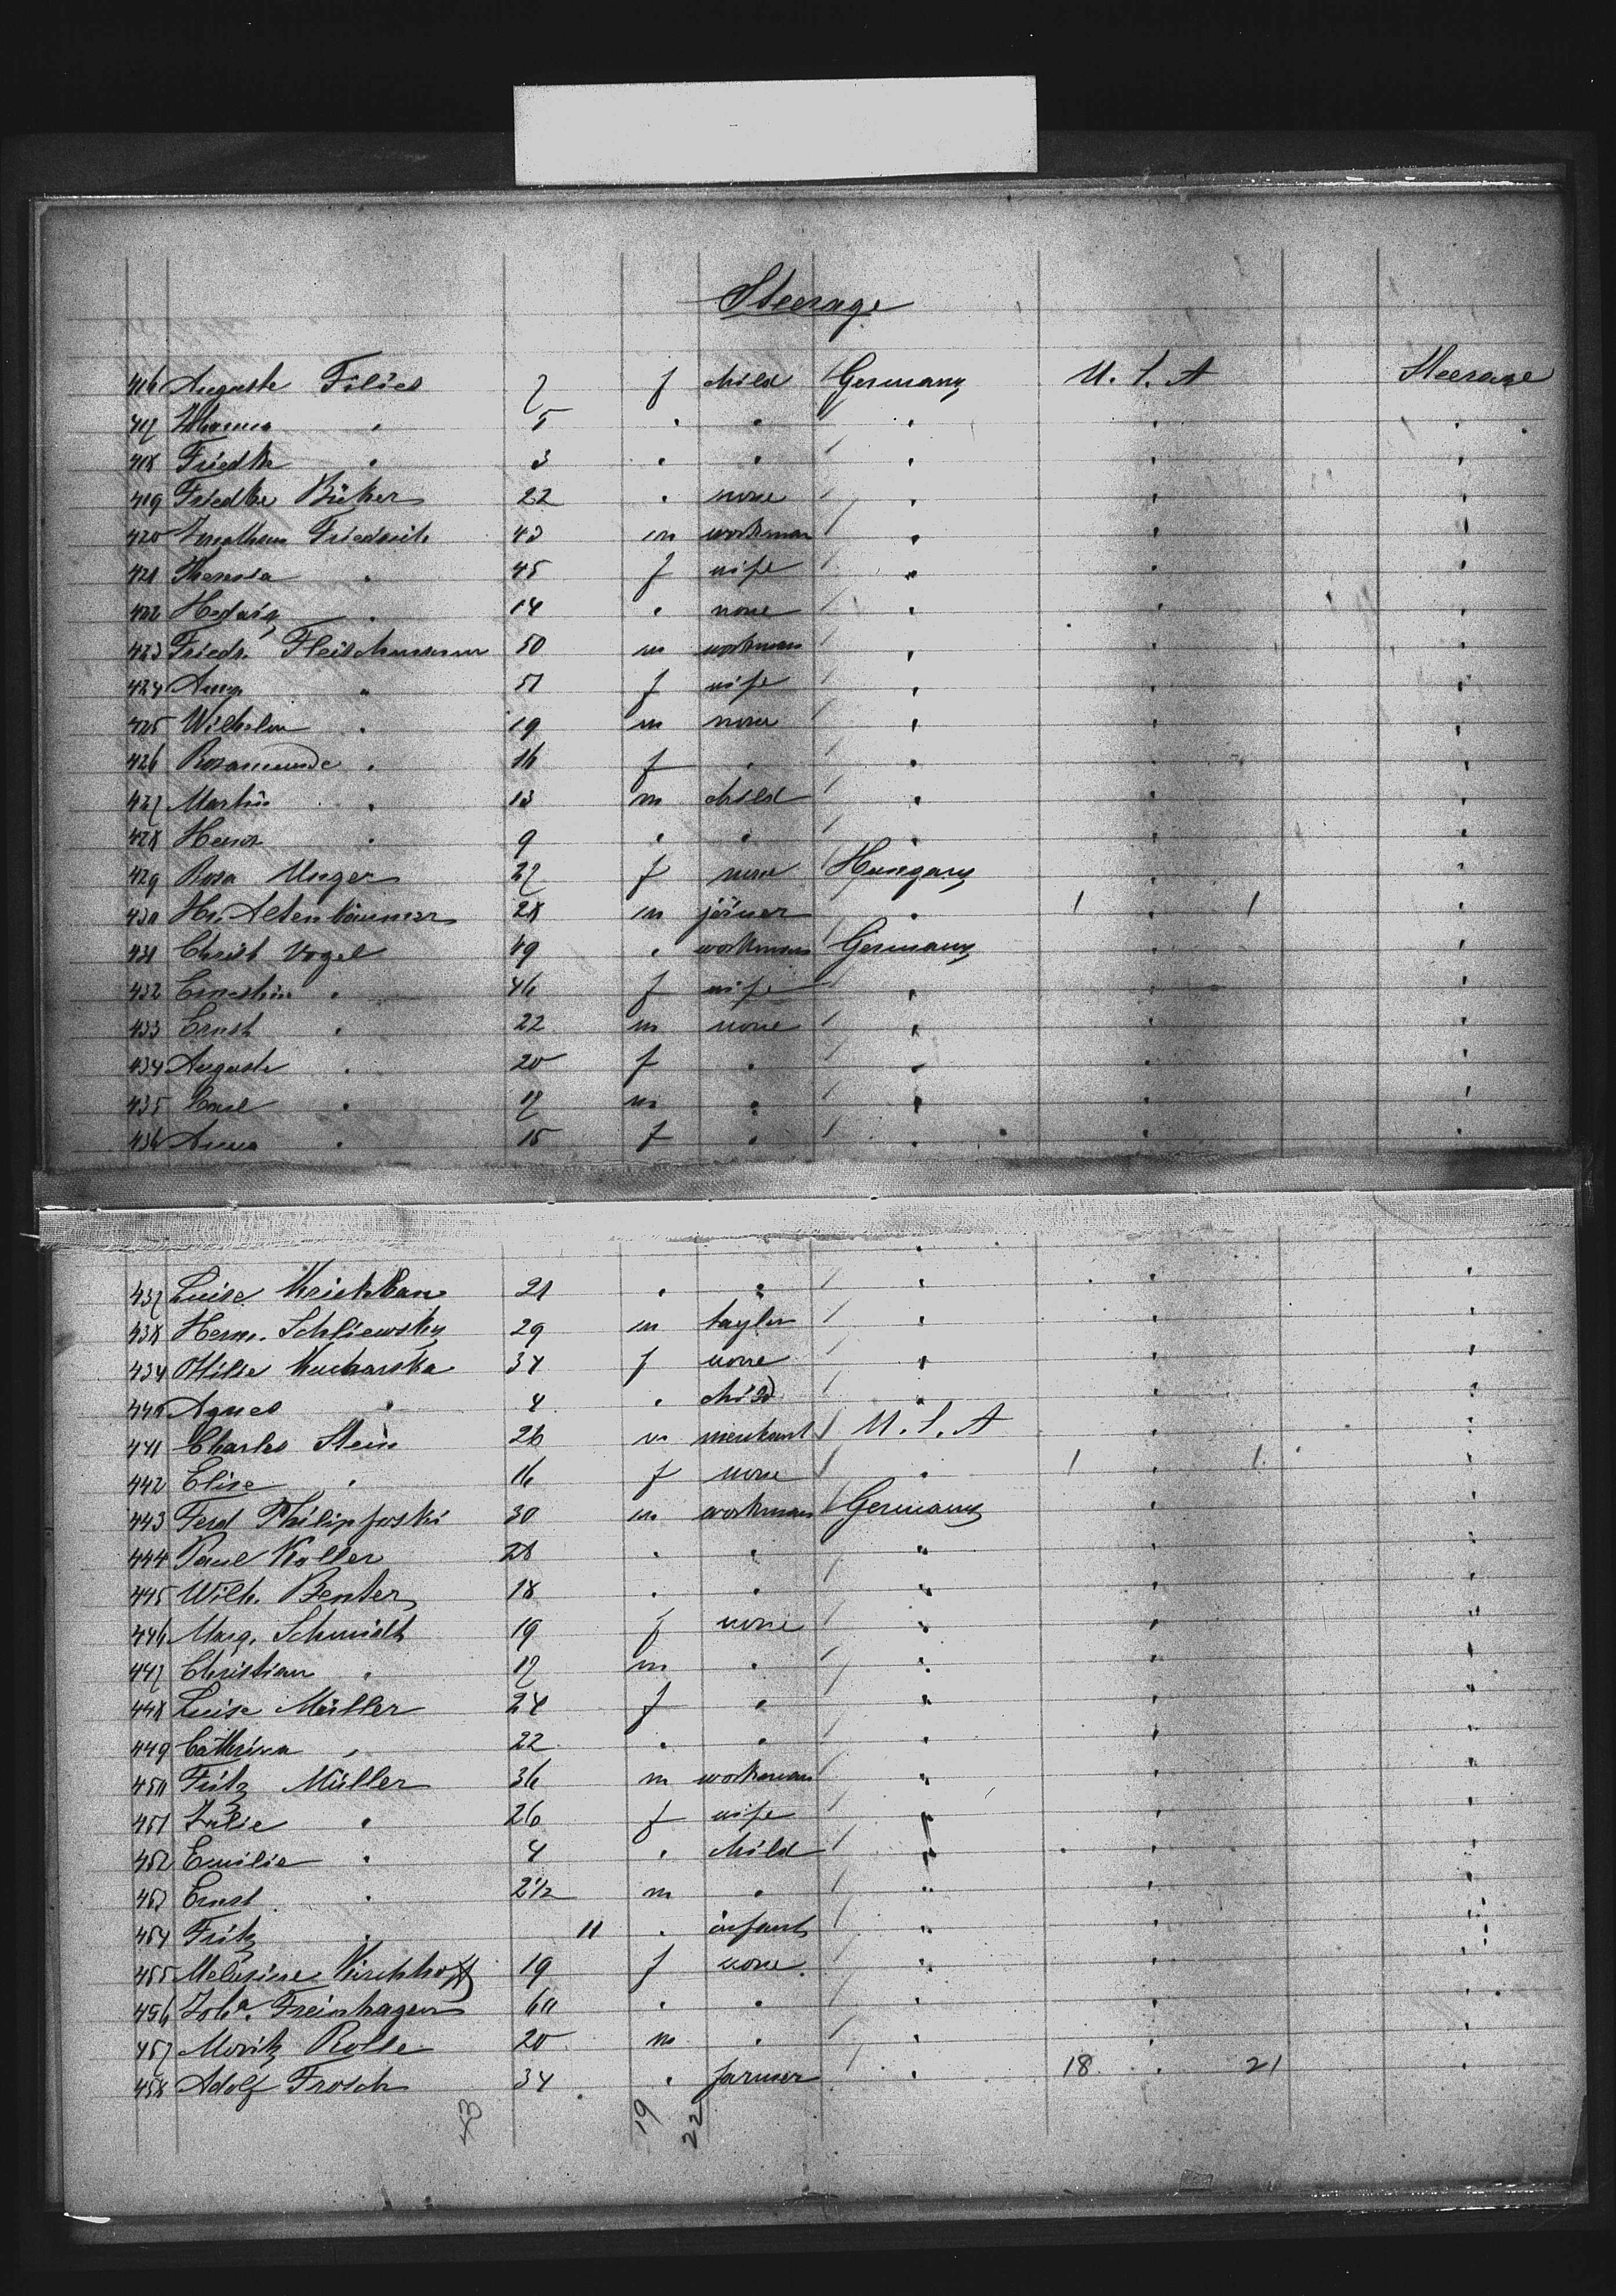 Steerage
416 Auguste Filies 7 f child Germany U.S.A Steerage
417 Johanna " 5 " " " " "
418 Friedke " 3 " " / " " "
419 Friedke Büker 22 " none / " " "
420 Jonathan Friedrich 43 m workman / " " "
421 Theresia " 45 f wife / " " "
422 Hedwig " 14 " none / " " "
423 Friedr. Fleischmann 50 m workman / " " "
424 " 51 f wife / " " "
425 Wilhelm " 19 m none / " " "
426 Rosamunde " 16 f " / " " "
427 Martin " 13 m child / " " "
428 " 9 " " / " " "
429 Rosa Unger 27 f none / Hungary " "
430 Hr. Altenbäumer 28 m joiner / " 1 " 1 "
431 Christ Vogel 49 " workman / Germany " "
432 Ernestine " 46 f wife / " " "
433 Ernst " 22 m none / " " "
434 Auguste " 20 f " / " " "
435 Carl " 17 m " / " " "
436 Anna " 15 f " / " " "
437 Luise 21 " " / " " "
438 Herm. Schliewsky 29 m taylor / " " "
434 Ottilie Kucharska 34 f none / " " "
440 Agnes " 4 " child / " " "
441 Charles Stein 26 m merchant / U.S.A " "
442 Elise " 16 f none / " 1 " 1 "
443 Ferd Philipposki 30 m workman / Germany " "
444 Paul Koller 28 " " / " " "
445 Wilh. Benter 18 " " / " " "
446 Marg. Schmidt 19 f none / " " "
447 Christian " 17 m " / " " "
448 Luise Müller 24 f " / " " "
449 Cathrina " 22 " " / " " "
450 Fritz Müller 36 m workman / " " "
451 Julie " 26 f wife / " " "
452 Emilie " 4 " child / " " "
453 Ernst " 2 1/2 m " / " " "
454 Fritz " 11 " infant / " " "
455 Melusine Kirchhoff 19 f none / " " "
456 Joha. Freinhagen 60 " " / " " "
457 Moritz Rolle 20 m " / " " "
458 Adolf Frosch 34 " farmer / " 18 " 21 "
43 19 22